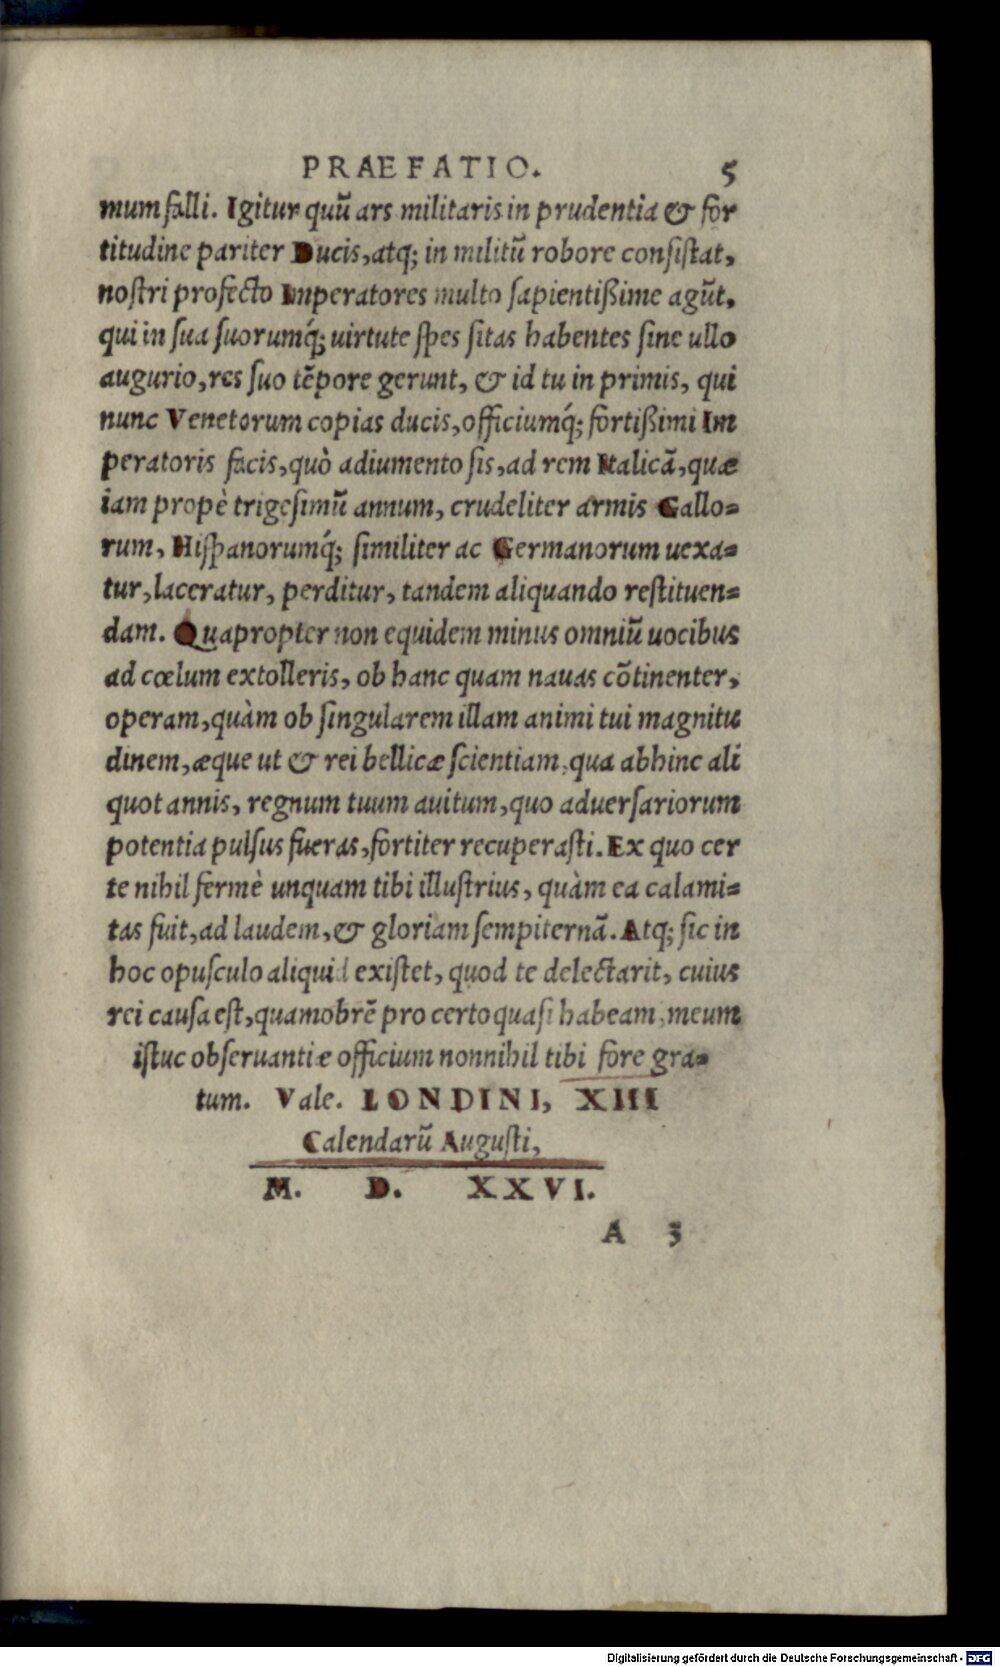 PRAEFATIO. 5
mum falli. Igitur quũ ars militaris in prudentia & for
titudine pariter Ducis, atq; in militũ robore consistat,
nostri profecto Imperatores multo sapientißime agũt,
qui in sua suorumq́; uirtute spes sitas habentes sine ullo
augurio, res suo tẽpore gerunt, & id tu in primis, qui
nunc Venetorum copias ducis, officiumq́; fortißimi Im
peratoris facis, quò adiumento sis, ad rem Italicã, quæ
iam propè trigesimũ annum, crudeliter armis Gallo=
rum, Hispanorumq́; similiter ac Germanorum uexa=
tur, laceratur, perditur, tandem aliquando restituen=
dam. Quapropter non equidem minus omniũ uocibus
ad cœlum extolleris, ob hanc quam nauas cõtinenter,
operam, quàm ob singularem illam animi tui magnitu
dinem, æque ut & rei bellicæ scientiam, qua abhinc ali
quot annis, regnum tuum auitum, quo aduersariorum
potentia pulsus fueras, fortiter recuperasti. Ex quo cer
te nihil fermè unquam tibi illustrius, quàm ea calami=
tas fuit, ad laudem, & gloriam sempiternã. Atq; sic in
hoc opusculo aliquid existet, quod te delectarit, cuius
rei causa est, quamobrẽ pro certo quasi habeam, meum
istuc obseruantiæ officium nonnihil tibi fore gra=
tum. Vale. LONDINI, XIII
Calendarũ Augusti,
M. D. XXVI.
A 3
Digitalisierung gefördert durch die Deutsche Forschungsgemeinschaft - DFG